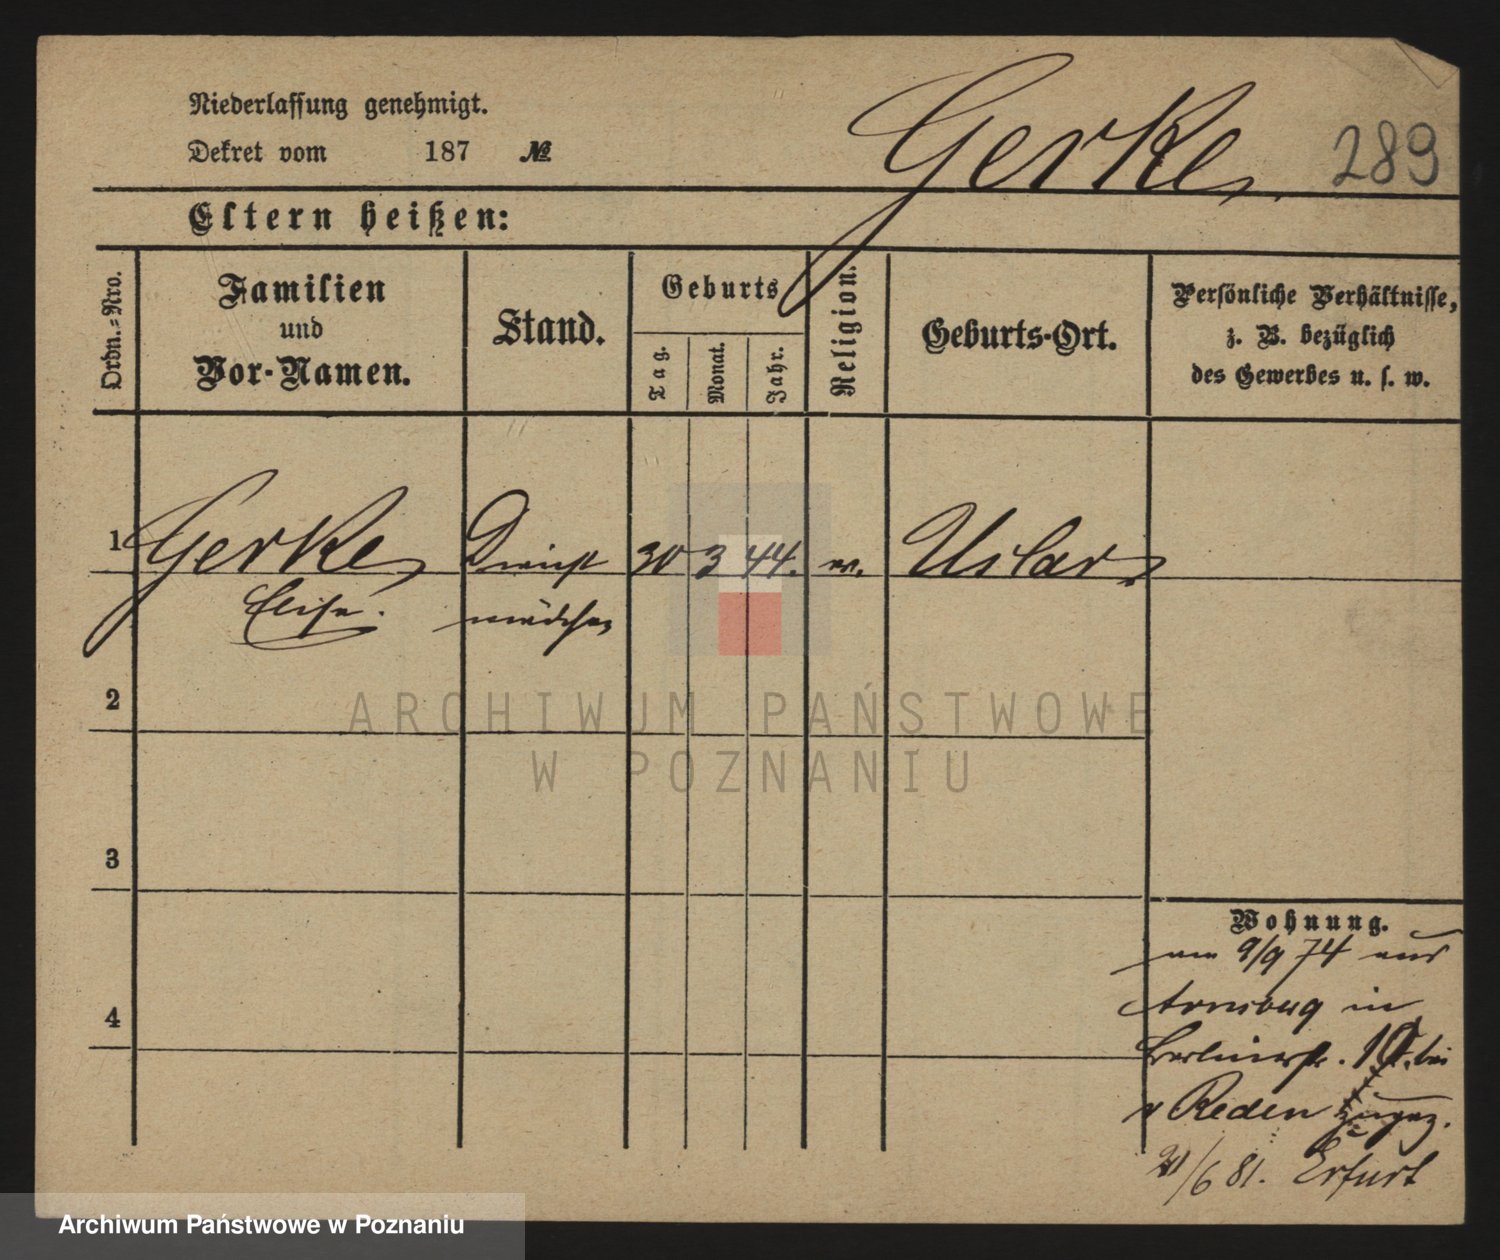 Niederlassung genehmigt.
Dekret vom 187 №
Gerke
289
Eltern heißen:
Ordn.=Nro.
Familien
und
Vor-Namen.
Stand.
Geburts
Tag.
Monat.
Jahr.
Religion.
Geburts-Ort.
Persönliche Verhältnisse,
z. B. bezüglich
des Gewerbes u. s. w.
1 Gerke Dienst 30 3 44. Uslar
Elise. mädchen
2
3
4
Wohnung.
am 9/9 74 aus
Arnsberg in
Berlinerstr. bei
v Reden zugez.
/6 81. Erfurt
ARCHIWUM PAŃSTWOWE
W POZNANIU
Archiwum Państwowe w Poznaniu